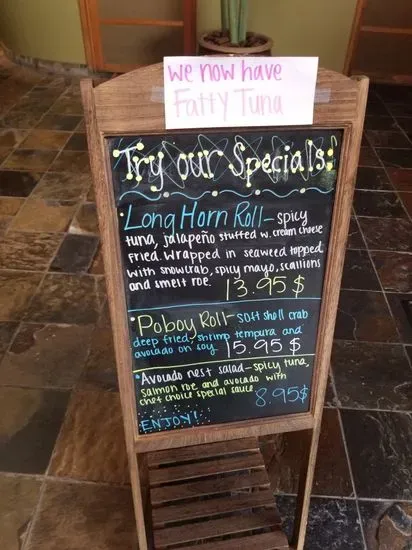 we now have
Fatty Tuna
Try our Specials!
Long Horn Roll - spicy
tuna, jalapeño stuffed w. cream cheese
fried wrapped in seaweed topped
with snowcrab, spicy mayo, scallions
and smelt roe. 13.95 $
Poboy Roll - soft shell crab
deep fried, shrimp tempura and
avocado on soy. 15.95 $
Avocado nest salad - spicy tuna,
salmon roe and avocado with
chef choice special sauce 8.95$
ENJOY!